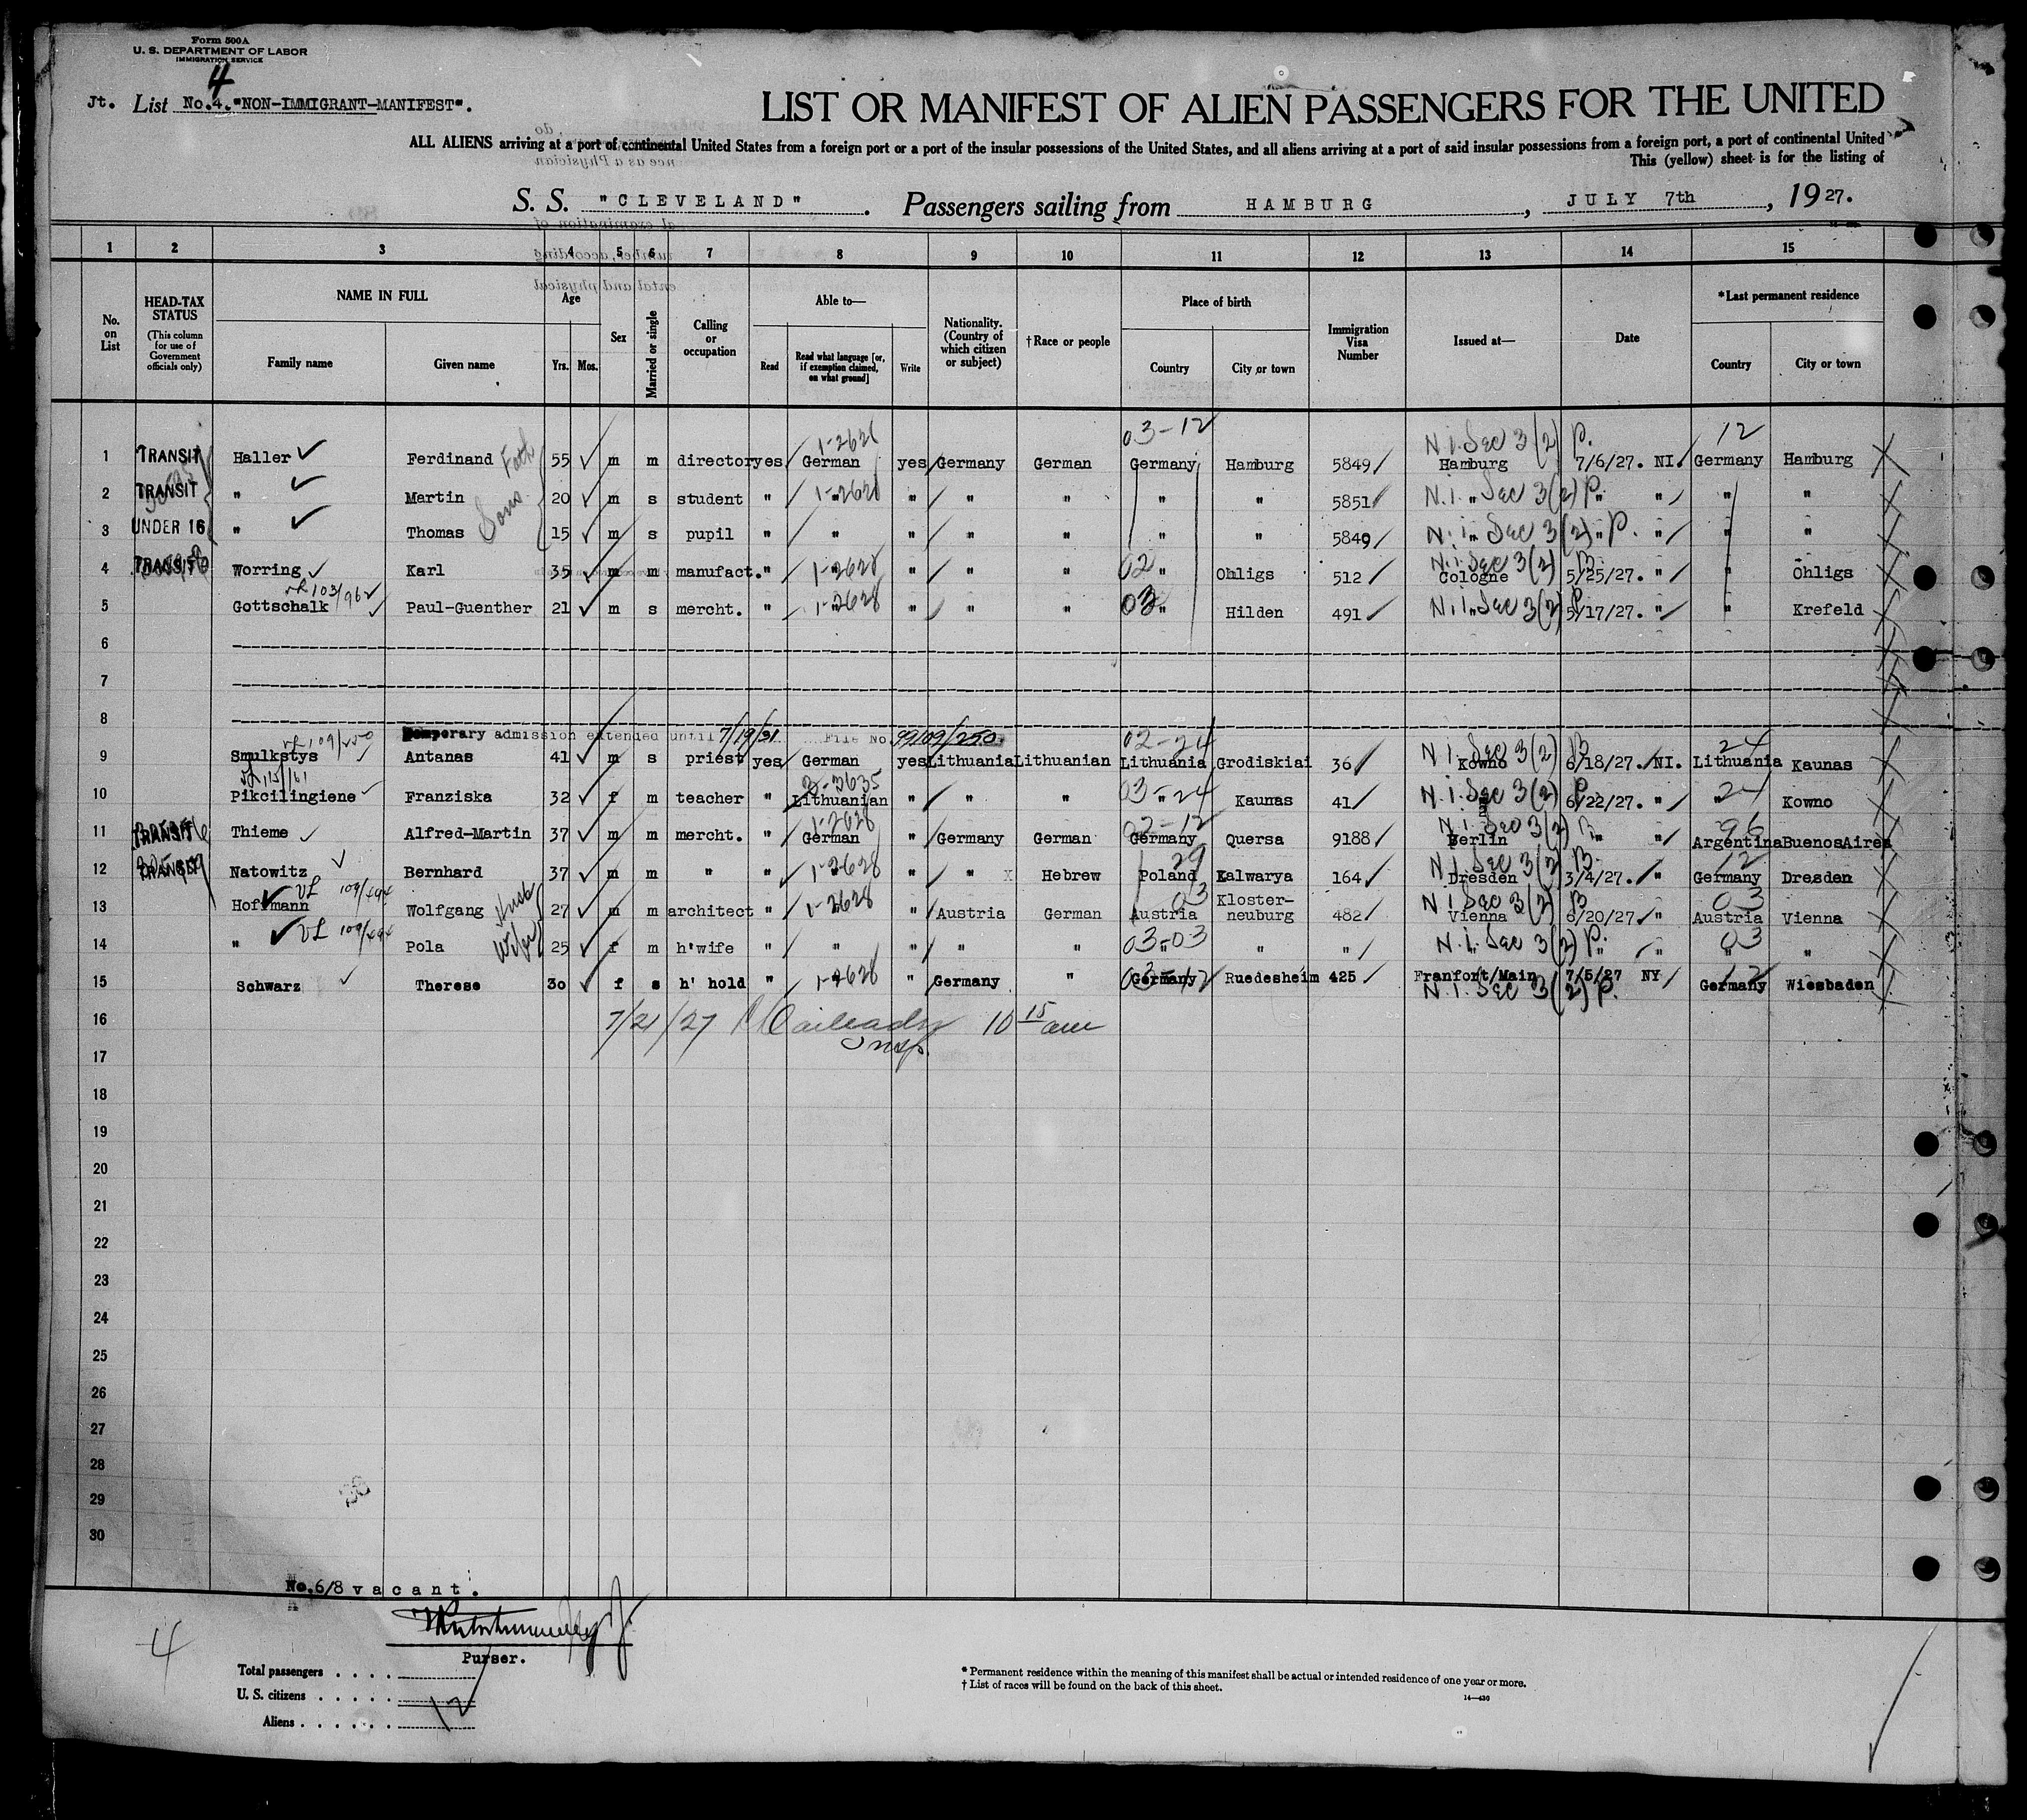 Form 500A
U. S. DEPARTMENT OF LABOR
IMMIGRATION SERVICE
4
Jt. List No.4."NON-IMMIGRANT-MANIFEST".
LIST OR MANIFEST OF ALIEN PASSENGERS FOR THE UNITED
ALL ALIENS arriving at a port of continental United States from a foreign port or a port of the insular possessions of the United States, and all aliens arriving at a port of said insular possessions from a foreign port, a port of continental United
This (yellow) sheet is for the listing of
S. S. "CLEVELAND". Passengers sailing from HAMBURG, JULY 7th, 1927.
1 2 3 4 5 6 7 8 9 10 11 12 13 14 15
No. on List
HEAD-TAX STATUS
(This column for use of Government officials only)
NAME IN FULL
Family name Given name
Age
Yrs. Mos.
Sex
Married or single
Calling or occupation
Able to—
Read Read what language [or, if exemption claimed, on what ground] Write
Nationality. (Country of which citizen or subject)
†Race or people
Place of birth
Country City or town
Immigration Visa Number
Issued at—
Date
*Last permanent residence
Country City or town
03-12 N.I. Sec 3(2) P. 12
1-2628
1 TRANSIT Haller Ferdinand Fath 55 m m director yes German yes Germany German Germany Hamburg 5849 Hamburg 7/6/27. NI. Germany Hamburg
2 TRANSIT " Martin Sons 20 m s student " 1-2628 " " " " " " 5851 N.I. " Sec 3(2) P. " " " "
3 UNDER 16 " Thomas 15 m s pupil " " " " " " " 5849 N.I. " Sec 3(2) P. " " " "
4 TRANSIT Worring Karl 35 m m manufact. " 1-2628 " " " 02 " Ohligs 512 N.I. Sec 3(2) P. Cologne 5/25/27. " " Ohligs
103/962
5 Gottschalk Paul-Guenther 21 m s mercht. " 1-2628 " " " 03 " Hilden 491 N.I. " Sec 3(2) P 5/17/27. " " Krefeld
6
7
8
Temporary admission extended until 7/19/31 File No. 99109/250
109/250 02-24 N.I. Sec 3(2) P. 24
9 Smulkstys Antanas 41 m s priest yes German yes Lithuania Lithuanian Lithuania Grodiskiai 36 Kowno 6/18/27. NI. Lithuania Kaunas
115/161 3635
10 Pikcilingiene Franziska 32 f m teacher " Lithuanian " " " 03-24 " Kaunas 41 N.I. Sec 3(2) P. " 6/22/27. " 24 " Kowno
1-2628 02-12 N.I. Sec 3(2) P. 96
11 TRANSIT Thieme Alfred-Martin 37 m m mercht. " German " Germany German Germany Quersa 9188 Berlin " " Argentina BuenosAires
29 12
12 TRANSIT Natowitz Bernhard 37 m m " " 1-2628 " " X Hebrew Poland Kalwarya 164 N.I. Sec 3(2) P. Dresden 3/4/27. " Germany Dresden
VL 109/494
13 Hoffmann Wolfgang Husb 27 m m architect " 1-2628 " Austria German 03 Austria Kloster-neuburg 482 N.I. Sec 3(2) P. Vienna 6/20/27 " 03 Austria Vienna
VL 109/494
14 " Pola Wife 25 f m h'wife " " " " " 03-03 " " " N.I. Sec 3(2) P. " " 03 " "
15 Schwarz Therese 30 f s h' hold " 1-2628 " Germany " 03-12 Germany Ruedesheim 425 Franfort/Main 7/5/27 NY 12 Germany Wiesbaden
N.I. Sec 3(2) P.
16 7/21/27 10 15 am
Insp.
17
18
19
20
21
22
23
24
25
26
27
28
29
30
No.6/8 vacant.
4
Purser.
Total passengers . . . .
U. S. citizens . . . . .
Aliens . . . . . . 12
* Permanent residence within the meaning of this manifest shall be actual or intended residence of one year or more.
† List of races will be found on the back of this sheet.
14—430